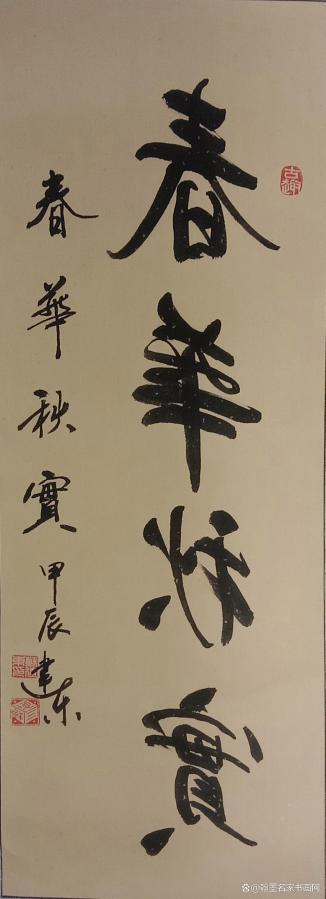 古趣
春華秋實
春華秋實 甲辰 建东
@翰墨名家书画网